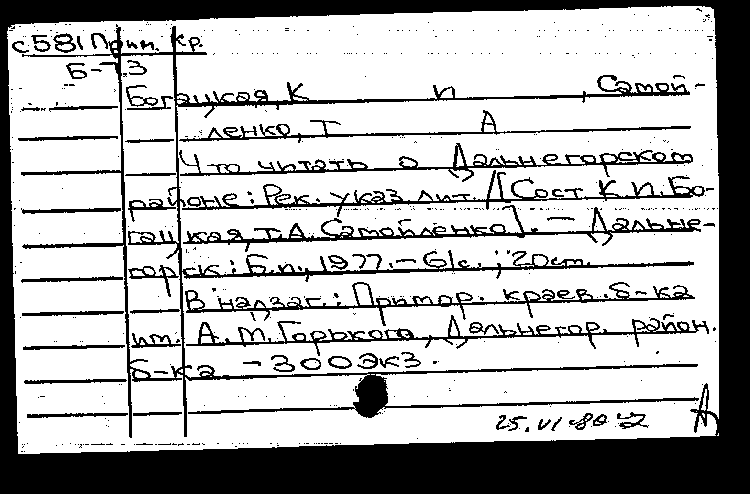 с581 Прим. кр.
Б-73
Богацкая, К п , Самой-
ленко, Т А
Что читать о Дальнегорском
районе: Рек. указ. лит. /[Сост. К. П. Бо-
гацкая, Т. А. Самойленко]. — Дальне-
горск: Б. и., 1977. — 61 с. ; 20 см.
В надзаг.: Примор. краев. б-ка
им. А. М. Горького, Дальнегор. район.
б-ка. — 300 экз.
25.VI-80